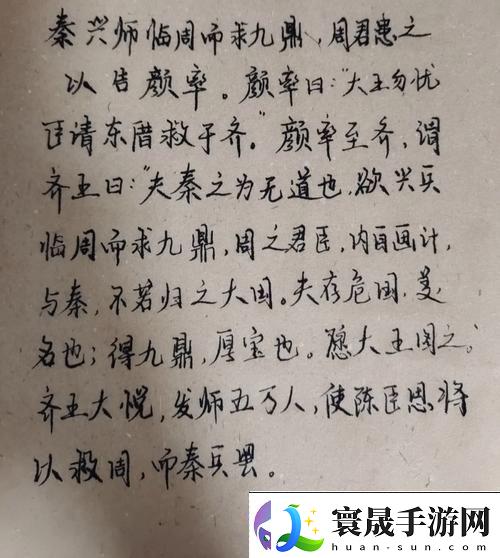 秦兴师临周而求九鼎，周君患之
以告颜率。颜率曰：“大王勿忧
臣请东借救于齐。”颜率至齐，谓
齐王曰：“夫秦之为无道也，欲兴兵
临周而求九鼎，周之君臣，内自画计，
与秦，不若归之大国。夫存危国，美
名也；得九鼎，厚宝也。愿大王图之。”
齐王大悦，发师五万人，使陈臣思将
以救周，而秦兵罢。
寰晟手游网
huan-sun.com